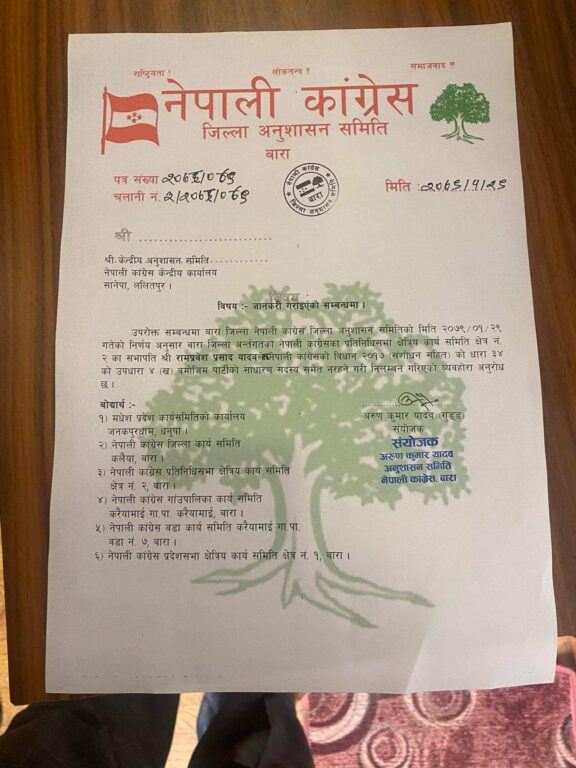 राष्ट्रियता !
लोकतन्त्र !!
समाजवाद !!!
नेपाली कांग्रेस
जिल्ला अनुशासन समिति
बारा
पत्र संख्या
चलानी नं.
मिति :
नेपाली कांग्रेस
जिल्ला अनुशासन समिति
बारा
श्री ............................
श्री केन्द्रीय अनुशासन समिति.............
नेपाली कांग्रेस केन्द्रीय कार्यालय
सानेपा, ललितपुर ।
विषय :- जानकारी गराईएको सम्बन्धमा ।
उपरोक्त सम्बन्धमा बारा जिल्ला नेपाली कांग्रेस जिल्ला अनुशासन समितिको मिति २०७९/०१/२९
गतेको निर्णय अनुसार बारा जिल्ला अर्न्तगतका नेपाली कांग्रेसका प्रतिनिधिसभा क्षेत्रिय कार्य समिति क्षेत्र नं.
२ का सभापति श्री रामप्रवेश प्रसाद यादव नेपाली कांग्रेसको विधान २०१७ (संशोधन सहित) को धारा ३४
को उपधारा ४ (ख) बमोजिम पार्टीको साधारण सदस्य समेत नरहने गरी निलम्बन गरिएको व्यवहोरा अनुरोध
छ ।
बोद्यार्थ :-
१) मधेश प्रदेश कार्यसमितिको कार्यालय
जनकपुरधाम, धनुषा ।
२) नेपाली कांग्रेस जिल्ला कार्य समिति
कलैया, बारा ।
३) नेपाली कांग्रेस प्रतिनिधिसभा क्षेत्रिय कार्य समिति
क्षेत्र नं. २, बारा ।
४) नेपाली कांग्रेस गांउपालिका कार्य समिति
करैयामाई गा.पा. करैयामाई, बारा ।
५) नेपाली कांग्रेस वडा कार्य समिति करैयामाई गा.पा.
वडा नं. ७, बारा ।
६) नेपाली कांग्रेस प्रदेशसभा क्षेत्रिय कार्य समिति क्षेत्र नं. १, बारा ।
अरुण कुमार यादव (गुड्डु)
संयोजक
संयोजक
अरुण कुमार यादव
अनुशासन समिति
नेपाली कांग्रेस, बारा